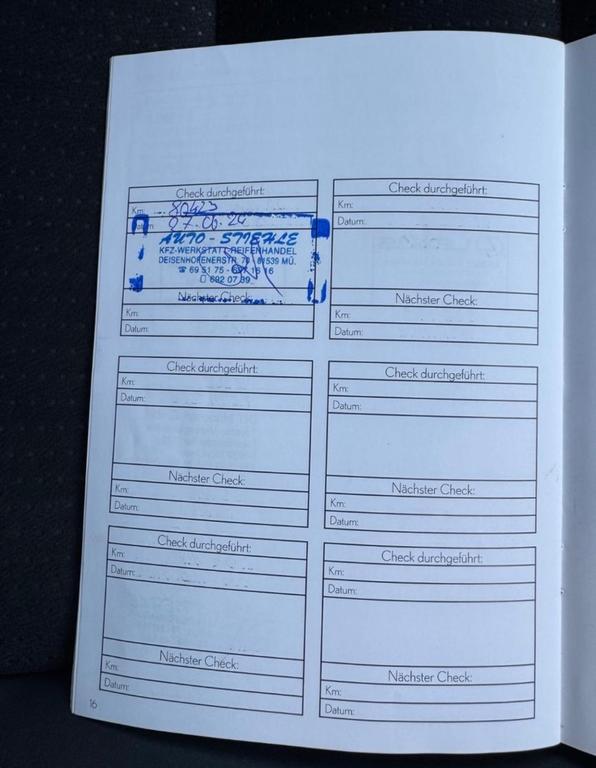 Check durchgeführt:
Km: 80423
Datum: 07.06.24
AUTO-STIEHLE
KFZ-WERKSTATT-REIFENHANDEL
DEISENHOFENERSTR. 79 · 81539 MÜ.
☎ 69 51 75 - 697 16 16
692 07 39
Nächster Check:
Km:
Datum:
Check durchgeführt:
Km:
Datum:
Nächster Check:
Km:
Datum:
Check durchgeführt:
Km:
Datum:
Nächster Check:
Km:
Datum:
Check durchgeführt:
Km:
Datum:
Nächster Check:
Km:
Datum:
Check durchgeführt:
Km:
Datum:
Nächster Check:
Km:
Datum:
Check durchgeführt:
Km:
Datum:
Nächster Check:
Km:
Datum:
16